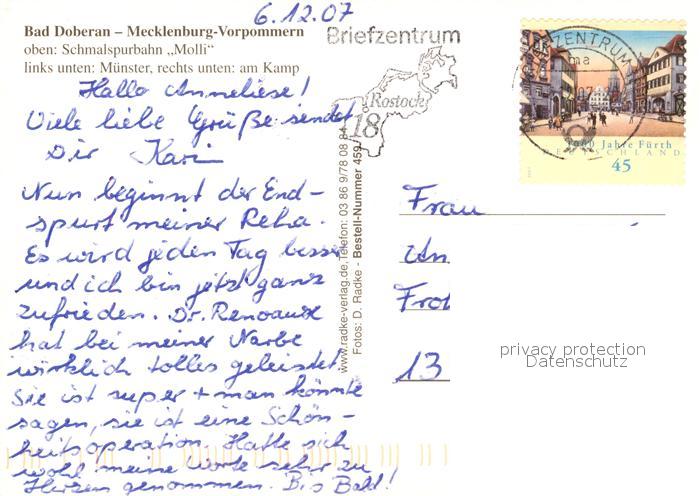 6.12.07
Bad Doberan – Mecklenburg-Vorpommern
oben: Schmalspurbahn „Molli"
links unten: Münster, rechts unten: am Kamp
Hallo Anneliese!
Viele liebe Grüße sendet
Dir Karin
Nun beginnt der End-
spurt meiner Reha.
Es wird jeden Tag besser
und ich bin jetzt ganz
zufrieden. Dr.
hat bei meiner Narbe
wirklich tolles geleistet.
Sie ist super + man könnte
sagen, sie ist eine Schön-
heitsoperation. Hatte sich
wohl meine Worte sehr zu
Herzen genommen. Bis Bald!
www.radke-verlag.de, Telefon: 03 86 9/78 08 84
Fotos: D. Radke - Bestell-Nummer 459
Briefzentrum
Rostock
18
BRIEFZENTRUM
ma
1000 Jahre Fürth
DEUTSCHLAND
45
Frau
An
Fro
13
privacy protection
Datenschutz